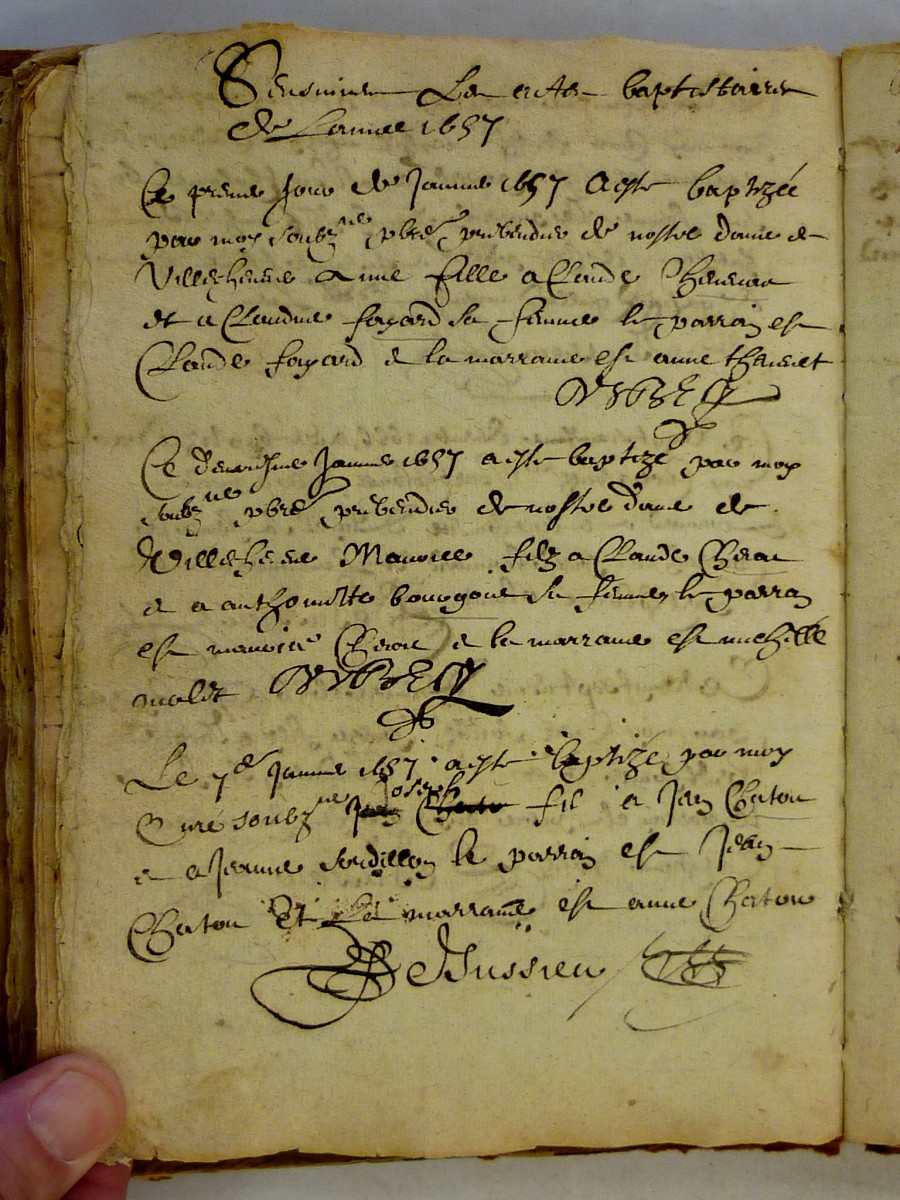 Sensuivent Les actes baptistaires
de Lannee 1657
Ce premier Jour de Januier 1657 a este baptizée
par moy soubzne pbre prebendier de nostre dame de
Villechenene anne fille a Claude
et a Claudine fayard sa femme le parrain est
Claude fayard e la marraine est anne thevenet
DVBECY
Ce deuxiesme Januier 1657 a este baptizé par moy
soubzne pbre prebendier de nostre dame de
Villechenene Maurice filz a Claude
e a anthoinette bourgois sa femme, le parrain
est maurice e la marraine est michelle
molet DVBECY
Le 7e Januier 1657 a este baptizé par moy
Cure soubzne Joseph fil a Jean Chaton
e a Jeanne le parrain est Jean
Chaton Et La marraine est anne Chaton
deBussieu